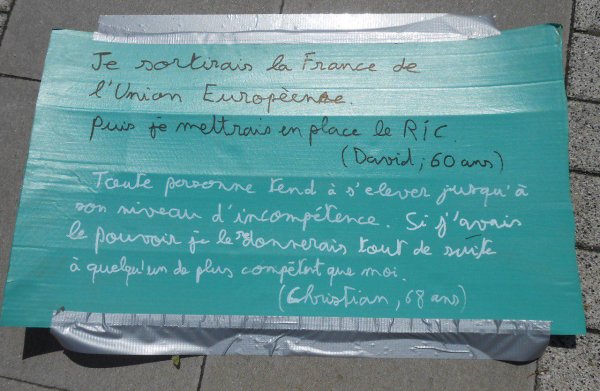 Je sortirais la France de
l'Union Européenne.
Puis je mettrais en place le RIC
(David, 60 ans)
Toute personne tend à s'elever jusqu'à
son niveau d'incompétence. Si j'avais
le pouvoir je le donnerais tout de suite
à quelqu'un de plus compétent que moi.
(Christian, 68 ans)